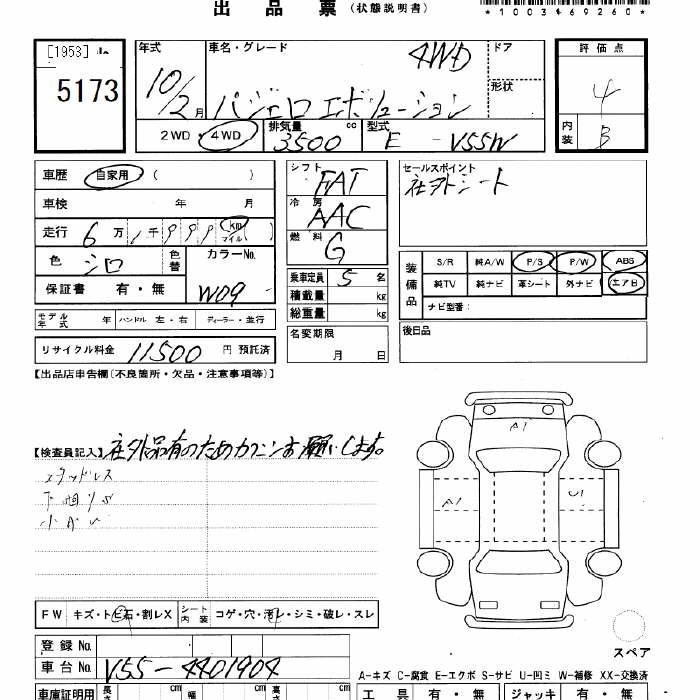 出品票（状態説明書）
*1003469260*
[1953]
5173
年式 車名・グレード 4WD ドア 評価点
10/2月 パジェロエボリューション 形状 4
2WD・4WD 排気量 3500 cc 型式 E-V55W 内装 B
車歴 自家用 ( ) シフト FAT セールスポイント
社外シート
車検 年 月 冷房 AAC
走行 6万1千999 km マイル ( ) 燃料 G
色 シロ 色替 カラーNo. W09
装備品 S/R 純A/W P/S P/W ABS
純TV 純ナビ 革シート 外ナビ エアB
ナビ型番：
保証書 有・無
乗車定員 5名
積載量 kg
総重量 kg
モデル年式 年 ハンドル 左・右 ディーラー・並行
名変期限 月 日
後日品
リサイクル料金 11500 円 預託済
【出品店申告欄(不良箇所・欠品・注意事項等)】
【検査員記入】社外品有のためカクニンお願いします。
スタッドレス
A1
A1
U1
FW キズ・トビ石・割レX シート内装 コゲ・穴・汚レ・シミ・破レ・スレ
スペア
登録No.
車台No. V55-4401904
A-キズ C-腐食 E-エクボ S-サビ U-凹ミ W-補修 XX-交換済
車庫証明用 長さ cm 幅 cm 高さ cm 工具 有・無 ジャッキ 有・無